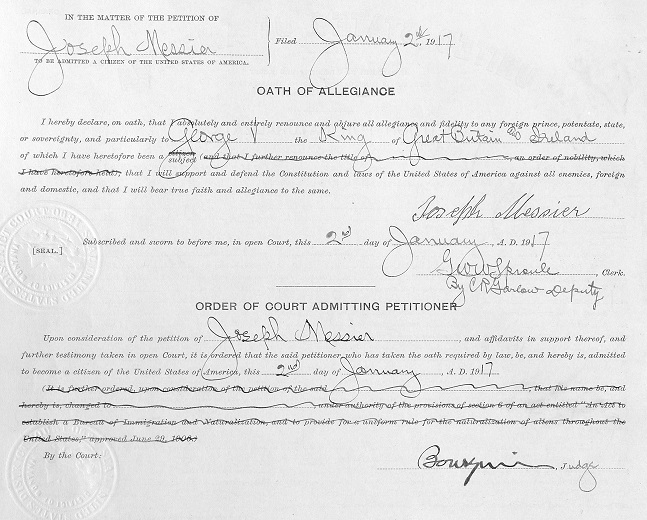 IN THE MATTER OF THE PETITION OF
Joseph Messier
TO BE ADMITTED A CITIZEN OF THE UNITED STATES OF AMERICA.
Filed January 2nd, 1917
OATH OF ALLEGIANCE
I hereby declare, on oath, that I absolutely and entirely renounce and abjure all allegiance and fidelity to any foreign prince, potentate, state,
or sovereignty, and particularly to George V the King of Great Britain and Ireland
of which I have heretofore been a citizen subject (and that I further renounce the title of , an order of nobility, which
I have heretofore held), that I will support and defend the Constitution and laws of the United States of America against all enemies, foreign
and domestic, and that I will bear true faith and allegiance to the same.
Joseph Messier
[SEAL.] Subscribed and sworn to before me, in open Court, this 2nd day of January, A. D. 1917
GWW Sproule, Clerk.
By C R Garlow Deputy
ORDER OF COURT ADMITTING PETITIONER
Upon consideration of the petition of Joseph Messier, and affidavits in support thereof, and
further testimony taken in open Court, it is ordered that the said petitioner, who has taken the oath required by law, be, and hereby is, admitted
to become a citizen of the United States of America, this 2nd day of January A. D. 1917
(It is further ordered, upon consideration of the petition of the said , that his name be, and
hereby is, changed to , under authority of the provisions of section 6 of an act entitled "An Act to
establish a Bureau of Immigration and Naturalization, and to provide for a uniform rule for the naturalization of aliens throughout the
United States," approved June 29, 1906.)
By the Court:
Bourquin, Judge